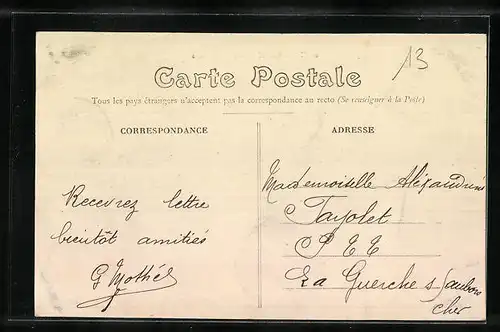 13
Carte Postale
Tous les pays étrangers n'acceptent pas la correspondance au recto (Se renseigner à la Poste)
CORRESPONDANCE
ADRESSE
Recevrez lettre
bientôt amitiés
Mademoiselle Alexandrine
La Guerche s/
Cher